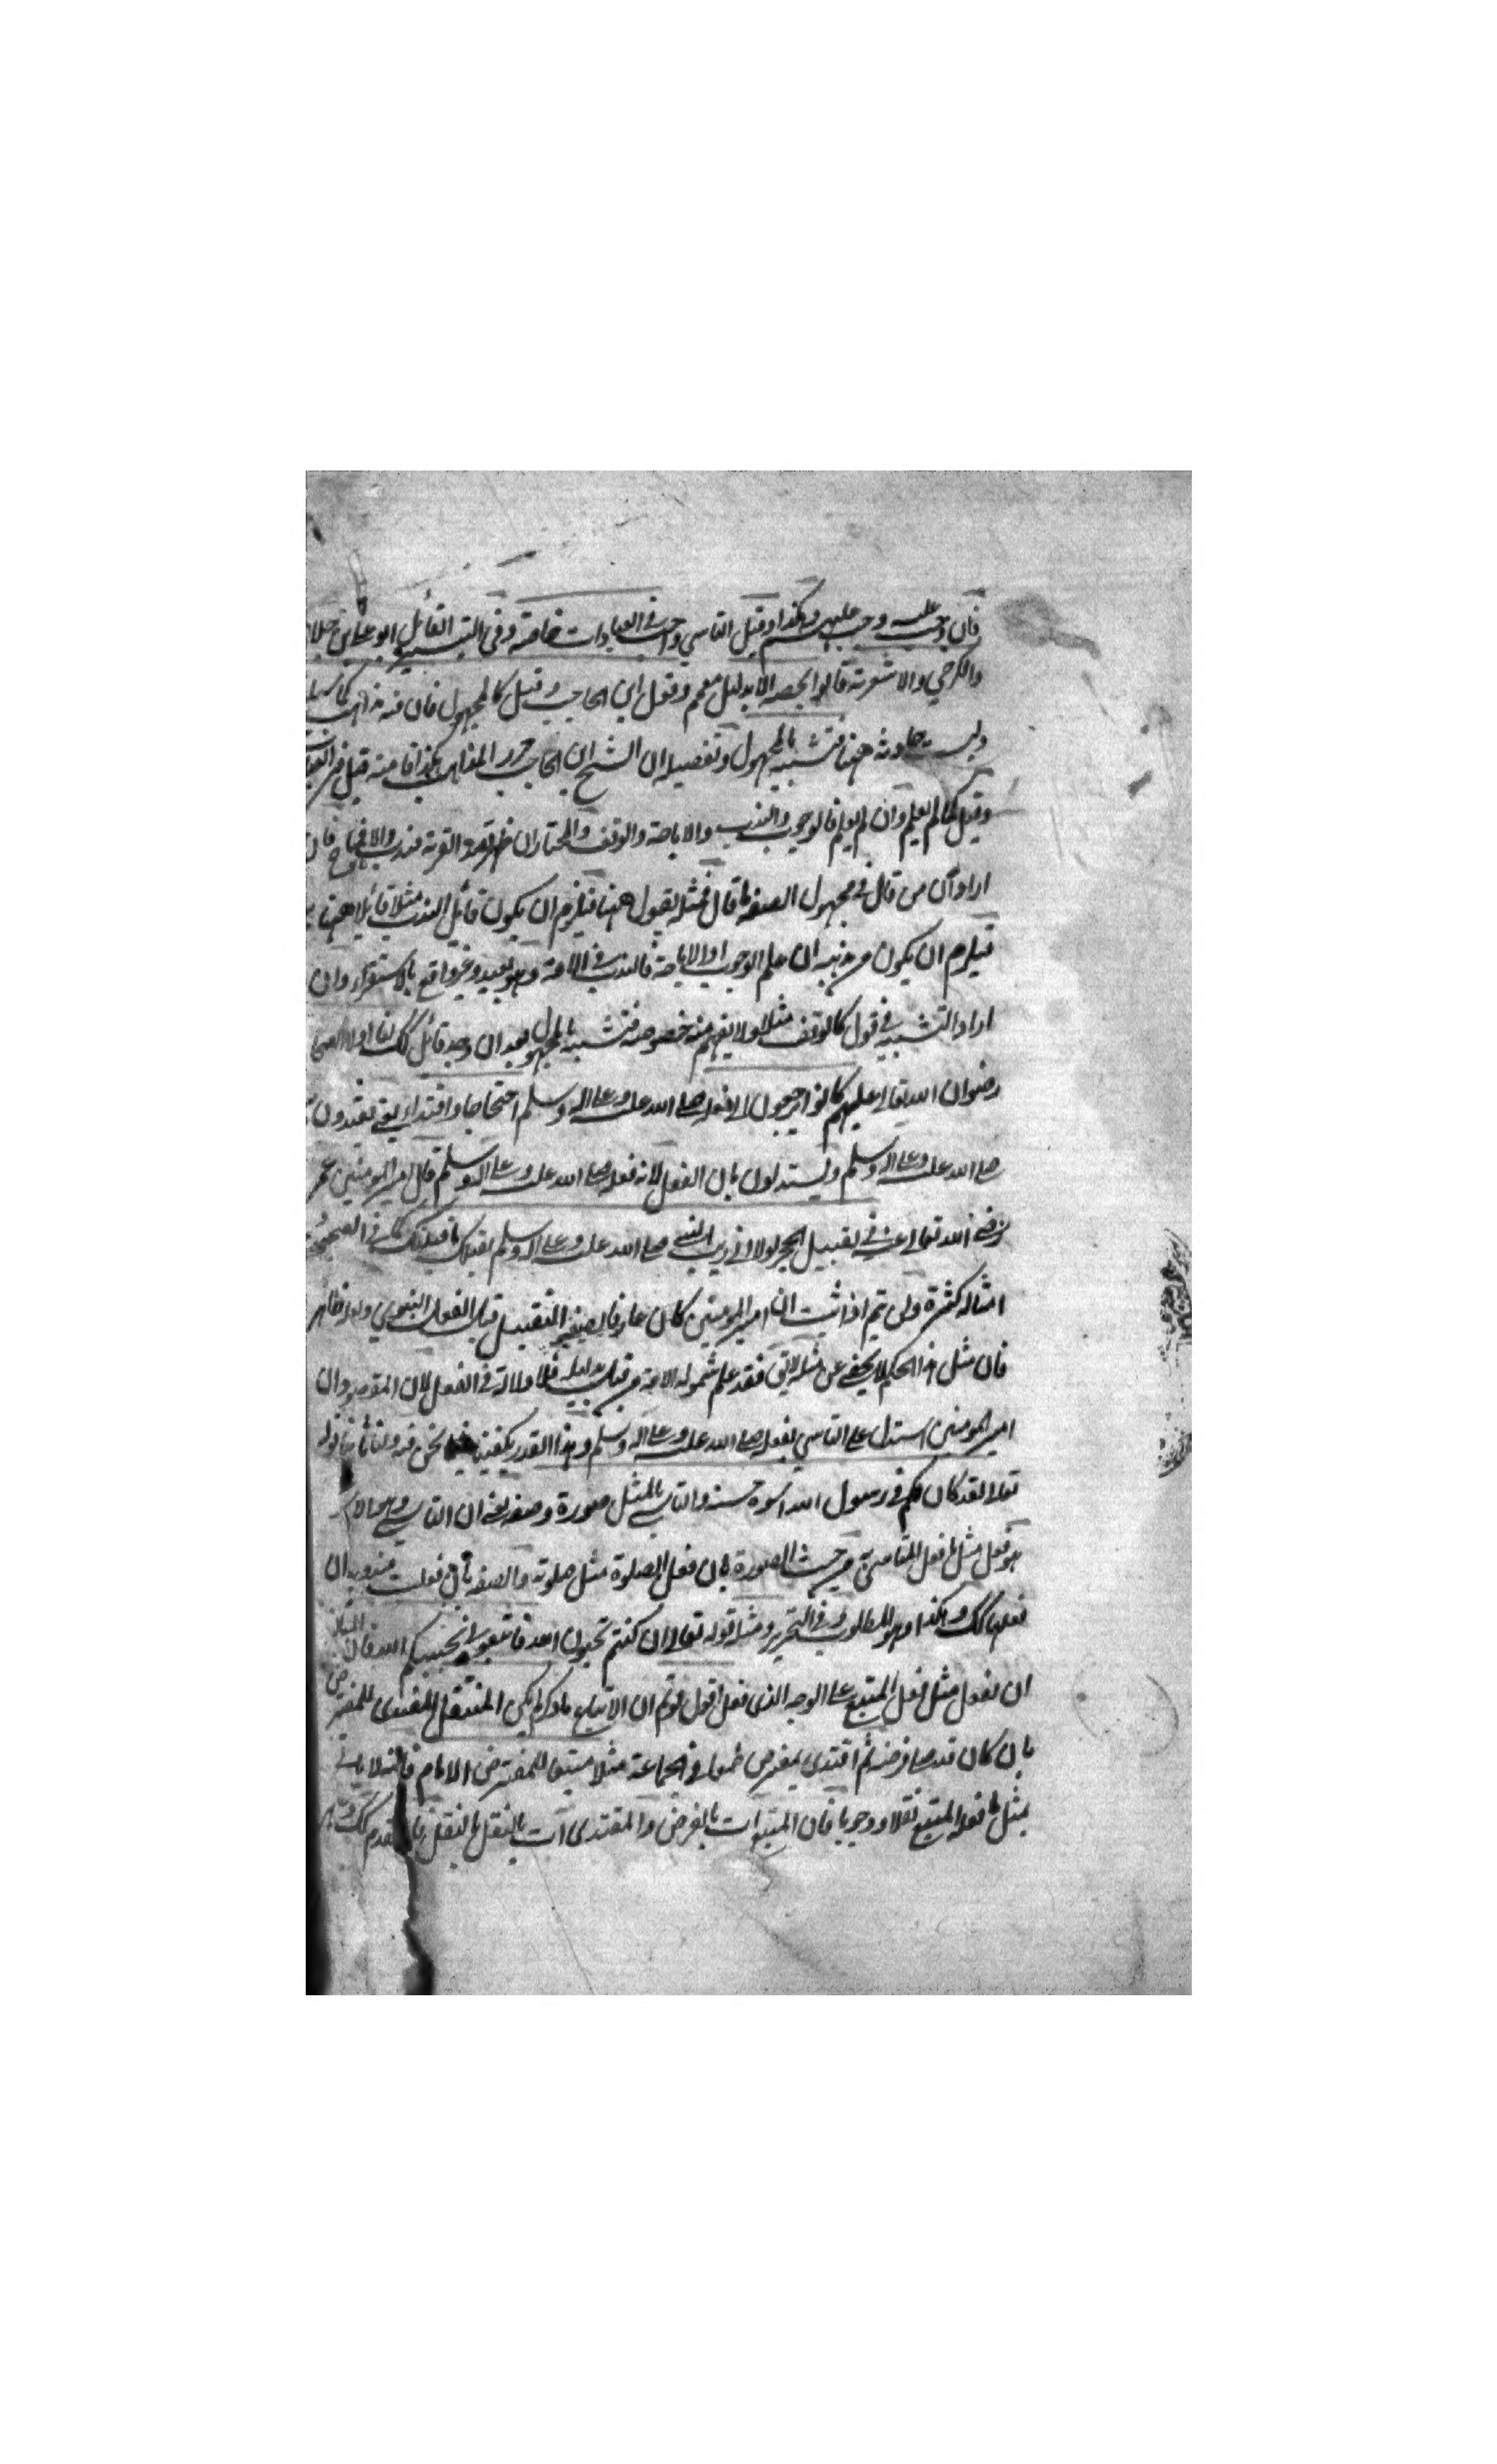 فان وجب عليه وجب عليهم وهكذا وقيل التاسي واجب في العبادات خاصة وفي التيسير القائل ابو علي بن خلاد
والكرخي والاشعرية قالوا يخصه الا بدليل معمم وقول ابن الحاجب وقيل كالمجهول فان فيه مذاهب كما
وليست معلومة ههنا فتشبيه بالمجهول وتفصيله ان الشيخ ابن الحاجب حرر المذاهب هكذا فامته قيل في العبادات
وقيل كما لم يعلم وان لم يعلم فالوجوب والندب والاباحة والوقف والمختار ان ظهر قصد القربة فندب والا فمباح فان
اراد ان من قال في مجهول الصفة ما قال فمثله يقول ههنا فيلزم ان يكون قائل الندب مثلا قائلا ههنا
فيلزم ان يكون من مذهبه ان علم الوجوب او الاباحة فالندب في الامة وهو بعيد وغير واقع بالاستقراء وان
اراد التشبيه في قول كالوقف مثلا ولا يفهم منه خصوصه فتشبيه بالمجهول بعد ان وجد قائل كك لنا اولا الصحابة
رضوان الله تعالى عليهم كانوا يرجعون الى فعله صلى الله عليه وعلى اله وسلم احتجاجا واقتداء يعني يقتدون
صلى الله عليه وعلى اله وسلم ويستدلون بان الفعل لانه فعله صلى الله عليه وعلى اله وسلم قال امير المومنين عمر
رضي الله تعالى عنه في تقبيل الحجر لولا اني رايت النبي صلى الله عليه وعلى اله وسلم يقبلك ما قبلتك كما في الصحيحين
امثاله كثيرة ولن يتم اذا ثبت ان امير المومنين كان عارفا بصفة التقبيل قبل الفعل النبوي ولعله ظاهر
فان مثل هذا الحكم لا يخفى عن مثله لايق فقد علم شموله الامة من قبل بدليله فلا دلالة في الفعل لان المقصود ان
امير المومنين استدل على التاسي بفعله صلى الله عليه وعلى اله وسلم وهذا القدر يكفينا فيما نحن فيه ولنا ثانيا قوله
تعالى لقد كان لكم في رسول الله اسوة حسنة والتاسي بالمثل صورة وصفة يعني ان التاسي
هو فعل مثل ما فعل المتاسي به من حيث الصورة بان فعل الصلوة مثل صلوته والصفة بان فعلت مندوبة ان
فعلها كك وهكذا وهو المطلوب وفي التحرير ومثله قوله تعالى ان كنتم تحبون الله فاتبعوني يحببكم الله فان المتابعة
ان يفعل مثل فعل المتبع على الوجه الذي فعل اقول لو تم ان الاتباع ما ذكر لم يكن المتنفل المقتدي للمفترض
بان كان قد صلى فرضه ثم اقتدى بمفترض طمعا في الجماعة مثلا متبعا للمفترض الامام فانه لا ياتي
بمثل ما فعله المتبع نفلا ووجوبا فان المتبع ات بالفرض والمقتدي ات بالنفل